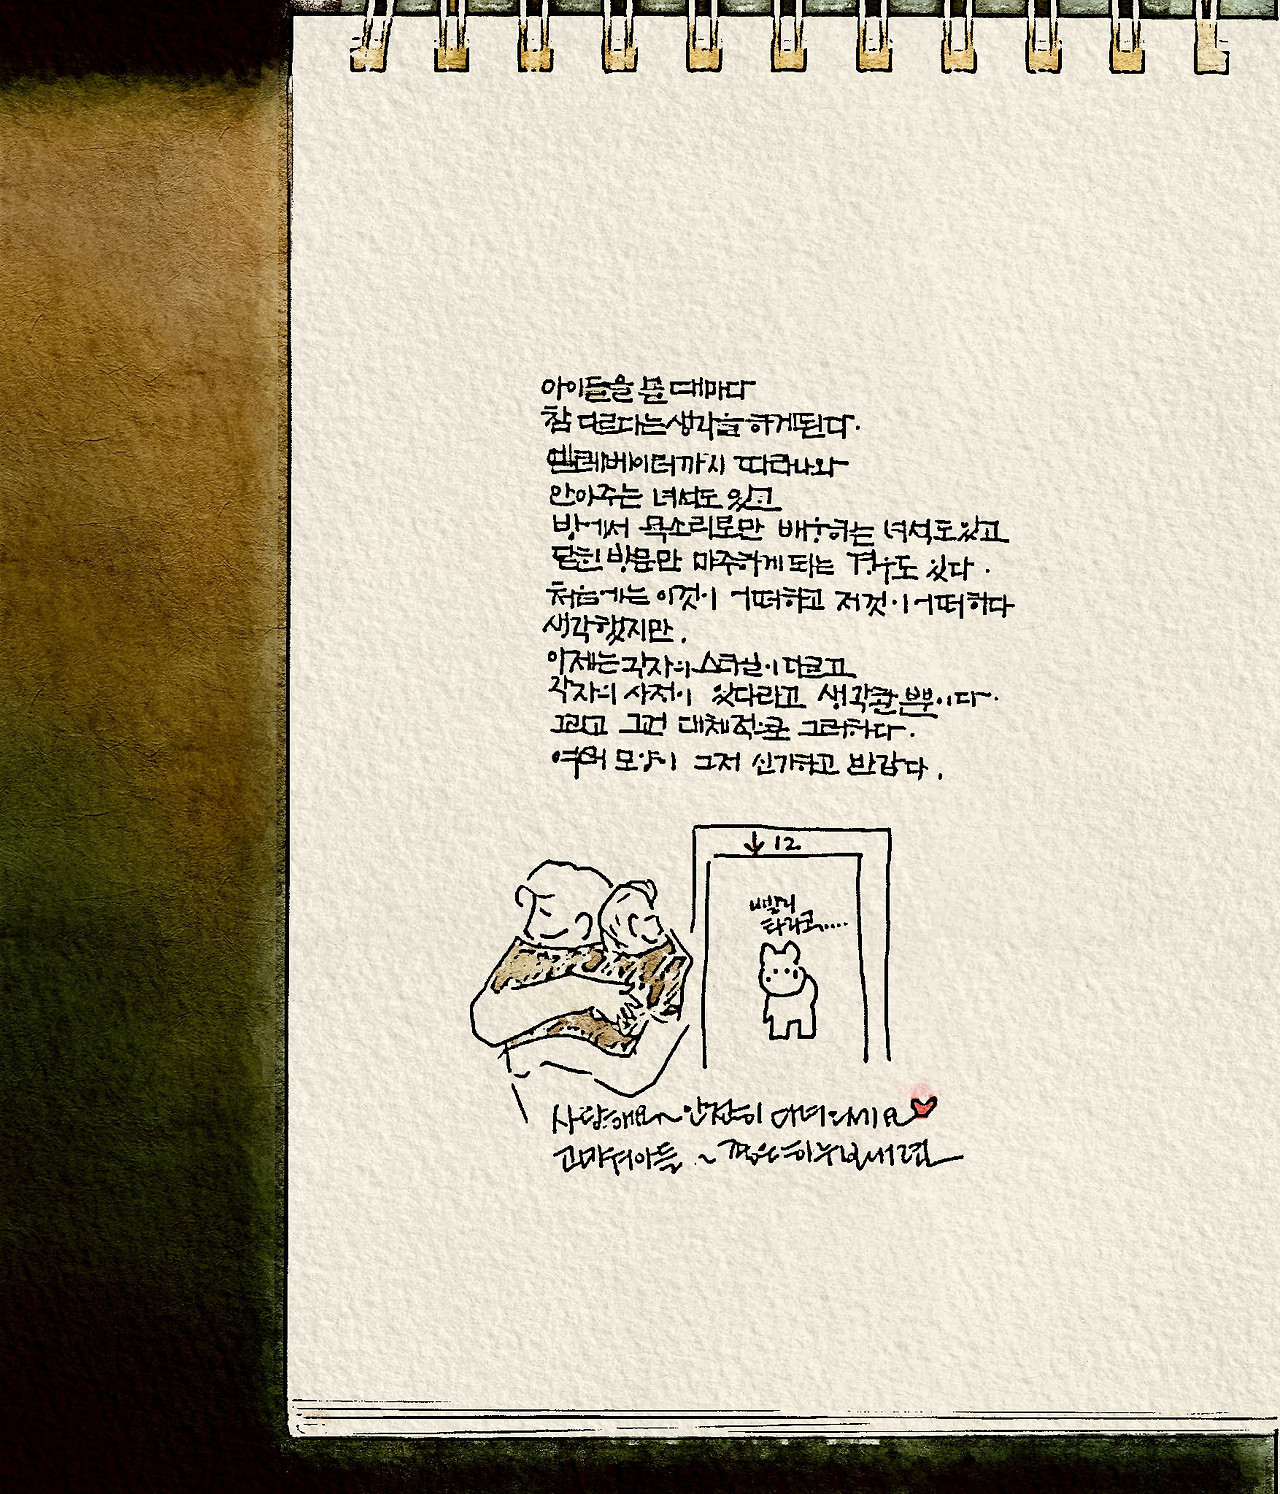 아이들을 볼 때마다
참 다르다는 생각을 하게된다.
엘레베이터까지 따라나와
안아주는 녀석도 있고
방에서 목소리로만 배웅하는 녀석도 있고
닫힌 방문만 마주하게 되는 경우도 있다.
처음에는 이것이 어떠하고 저것이 어떠하다
생각했지만.
이제는 각자의 스타일이 다르고
각자의 사정이 있다라고 생각할 뿐이다.
그리고 그건 대체적으로 그러하다.
여러 모양이 그저 신기하고 반갑다.
↓ 12
빨리
타라고.....
사랑해요~ 안전히 다녀오세요
고마워 아들 ~ 좋은 하루 보내렴